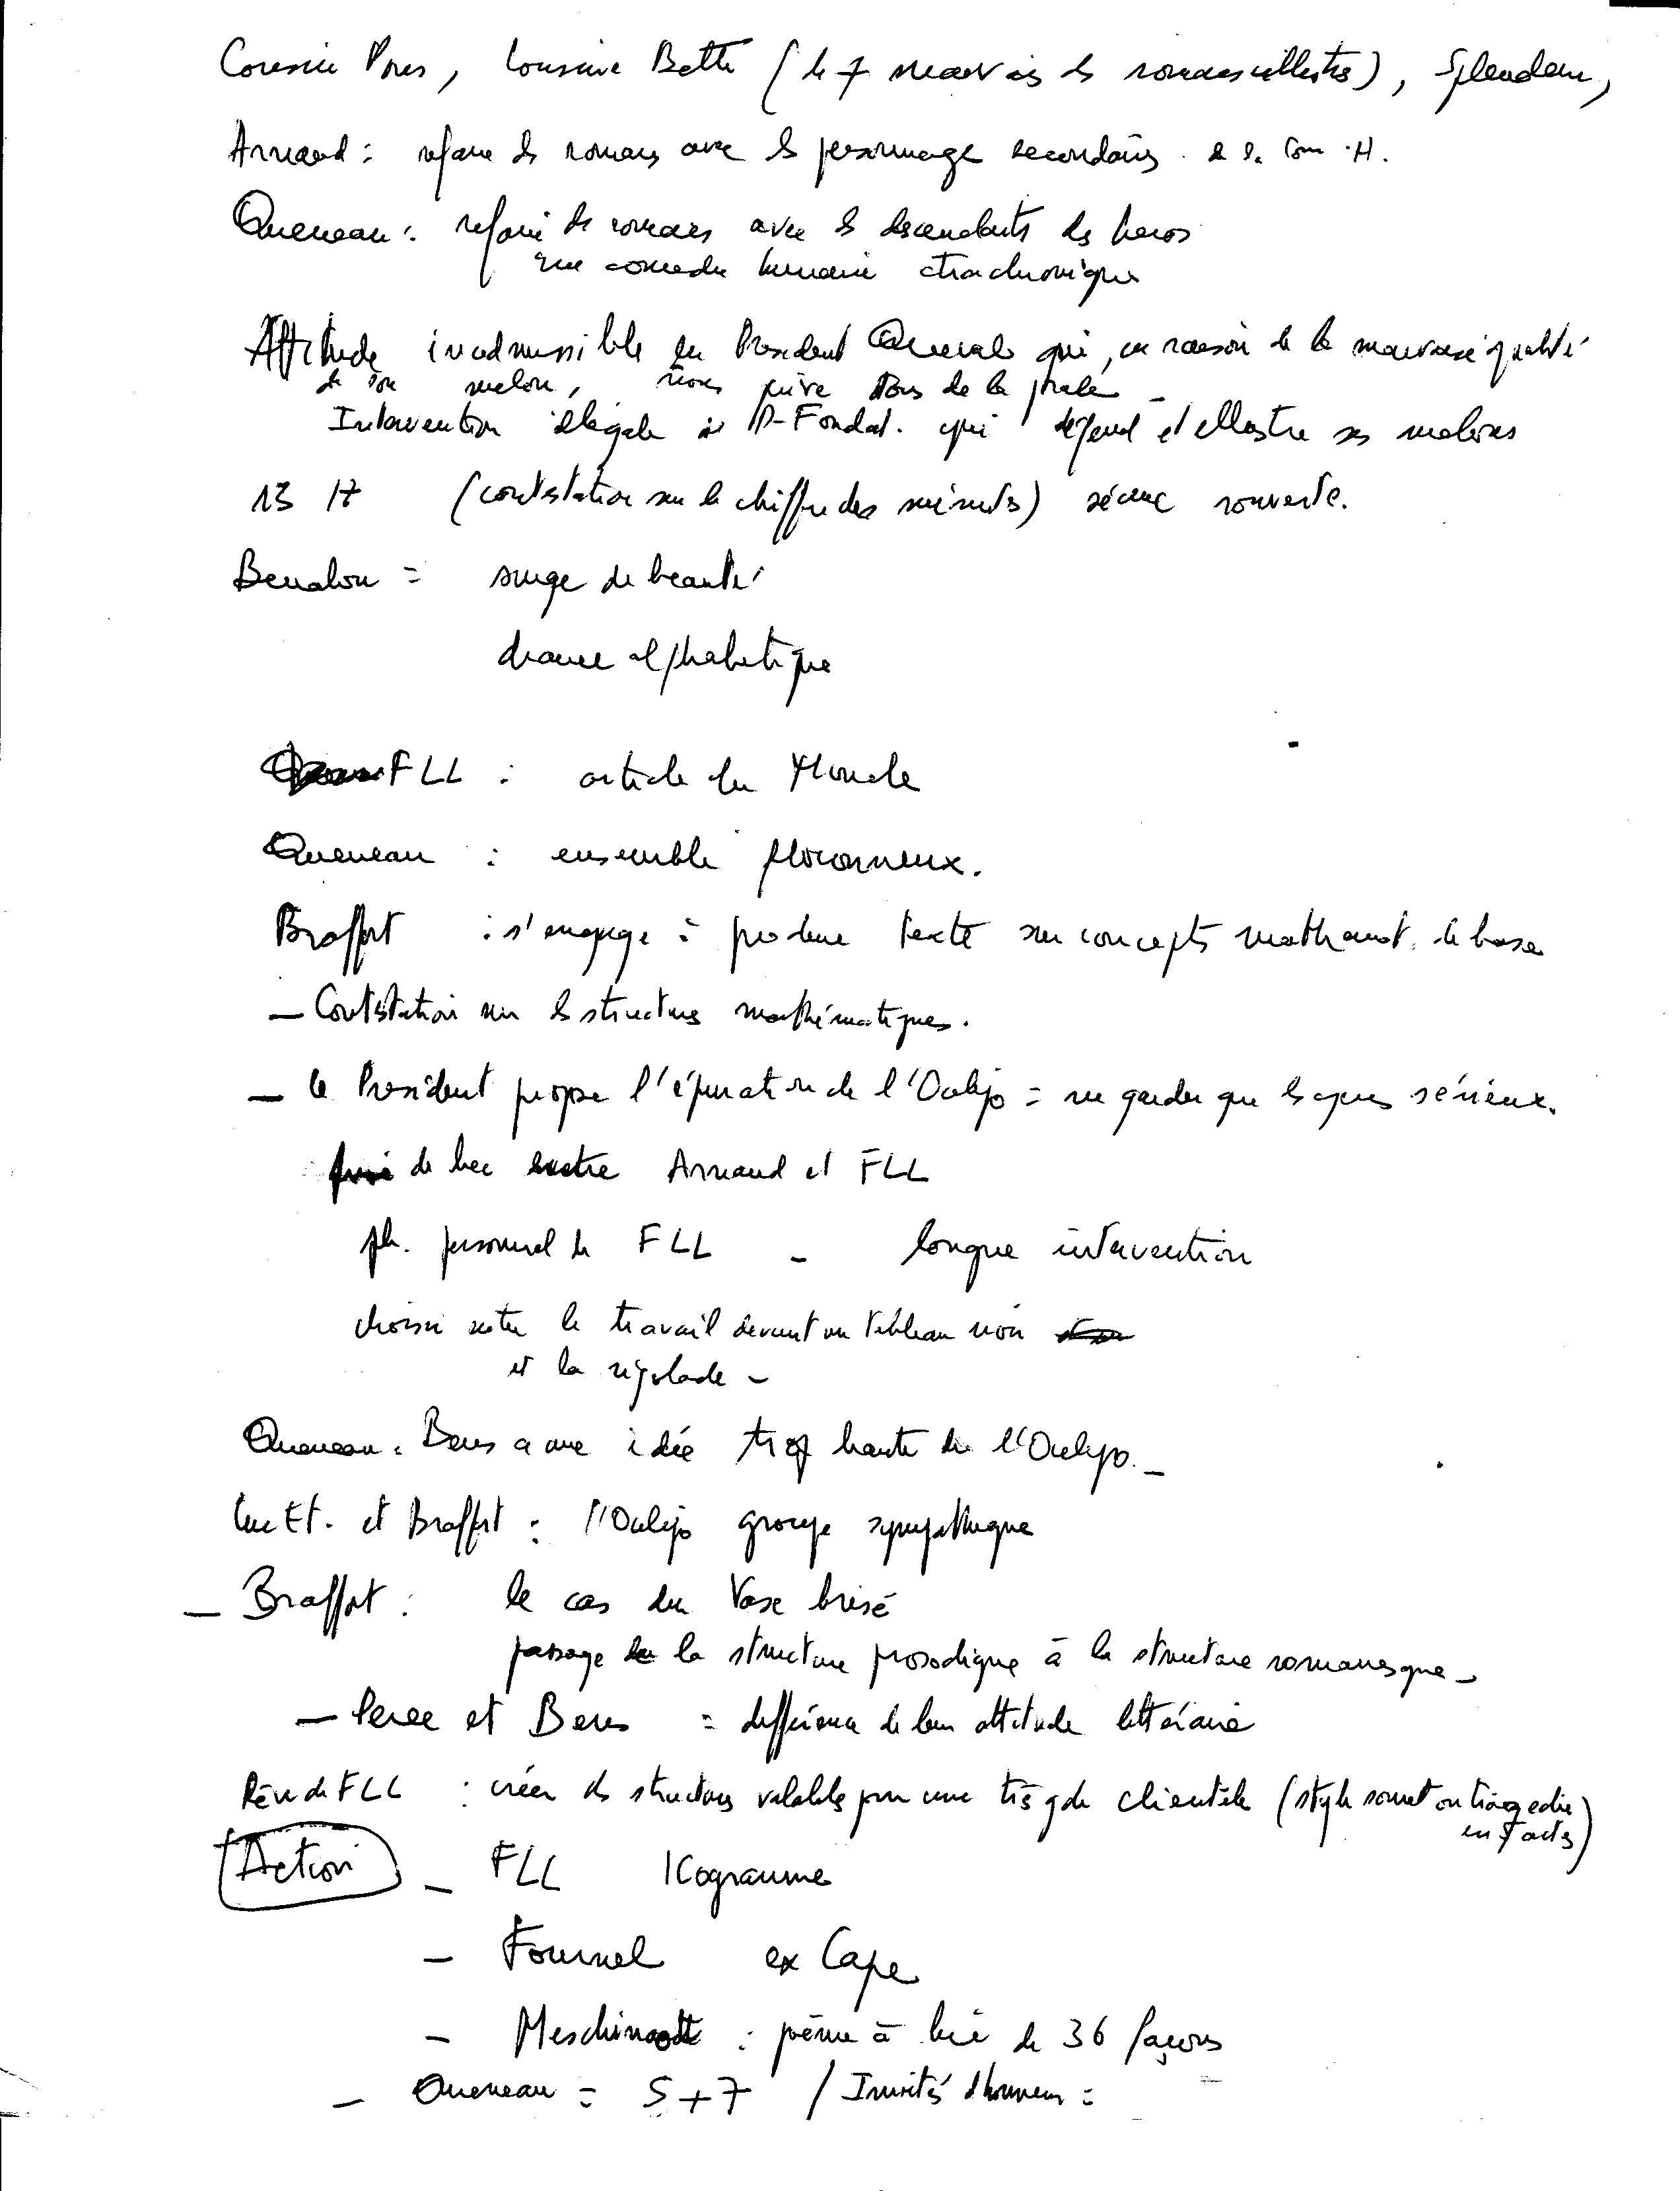 Cousin Pons, Cousine Bette (le 7 mauvais des romans illustrés), Splendeur,
Arnaud : refaire des romans avec les personnages secondaires de la Com. H.
Queneau : refaire des romans avec les descendants des heros
une comedie humaine anachronique
Attitude inadmissible du President Queval qui, en raison de la mauvaise qualité
de son melon, nous prive tous de la parole -
Intervention illégale du P-Fondat. qui defend et illustre ses melons
13 17 (contestation sur le chiffre des minutes) séance rouverte.
Benabou = singe de beauté
drame alphabetique
FLL : article du Monde
Queneau : ensemble floconneux.
Braffort : s'engage à produire texte sur concepts mathemat. de base
- Contestation sur les structures mathématiques.
- Le President propose l'épuration de l'Oulipo = ne garder que les gens sérieux.
prise de bec entre Arnaud et FLL
pb. personnel de FLL - longue intervention
choisir entre le travail devant un tableau noir
et la rigolade -
Queneau : Bens a une idée trop haute de l'Oulipo. -
Luc Et. et Braffort : l'Oulipo groupe sympathique
- Braffort : le cas du Vase brisé
passage de la structure prosodique à la structure romanesque -
- Perec et Bens = différence de leur attitude littéraire
Rêve de FLL : créer des structures valables pour une très gde clientèle (style sonnet ou tragedie
en 5 actes)
Action - FLL ICogramme
- Fournel ex Cape
- Meschinot : poème à lire de 36 façons
- Queneau = S+7 / Invités d'honneur =